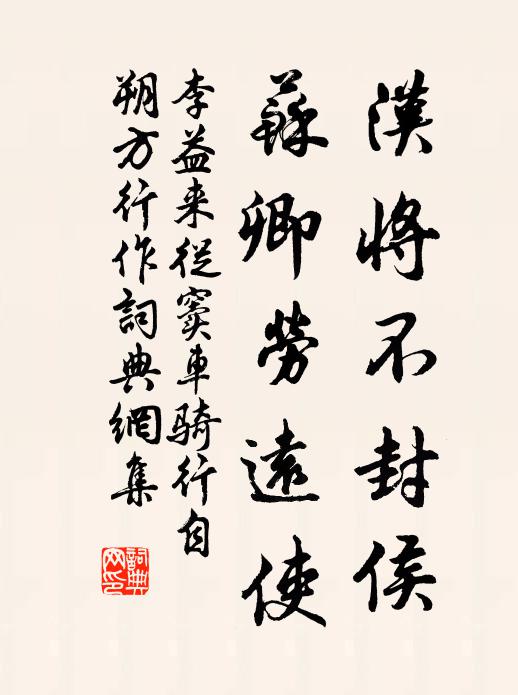 漢將不封侯
蘇卿勞遠使
李益来從竇車騎行自
朔方行作詞典網集
詞典
网印